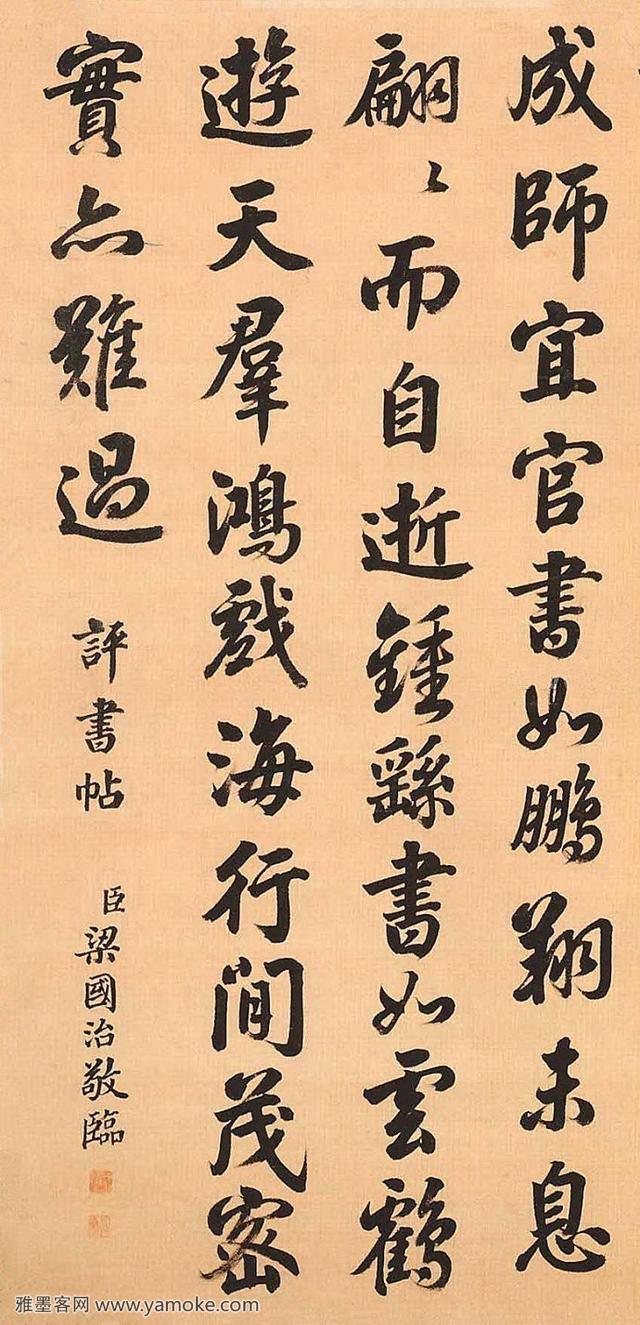 成師宜官書如鵬翔未息
翩〻而自逝鍾繇書如雲鶴
遊天羣鴻戲海行間茂密
實亦難過
評書帖
臣梁國治敬臨
雅墨客网 www.yamoke.com